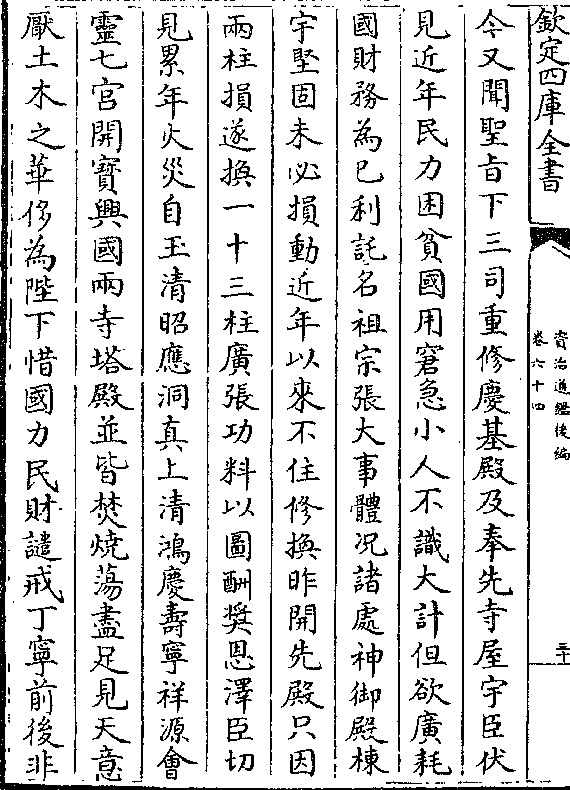 欽定四庫全書
資治通鑑後編
卷六十四
三十
今又聞聖旨下三司重修慶基殿及奉先寺屋宇臣伏
見近年民力困貧國用窘急小人不識大計但欲廣耗
國財務為已利託名祖宗張大事體况諸處神御殿棟
宇堅固未必損動近年以來不住修換昨開先殿只因
兩柱損遂換一十三柱廣張功料以圖酬奬恩澤臣切
見累年火災自玉清昭應洞真上清鴻慶壽寧祥源會
靈七宫開寳興國兩寺塔殿並皆焚燒蕩盡足見天意
厭土木之華侈為陛下惜國力民財譴戒丁寧前後非